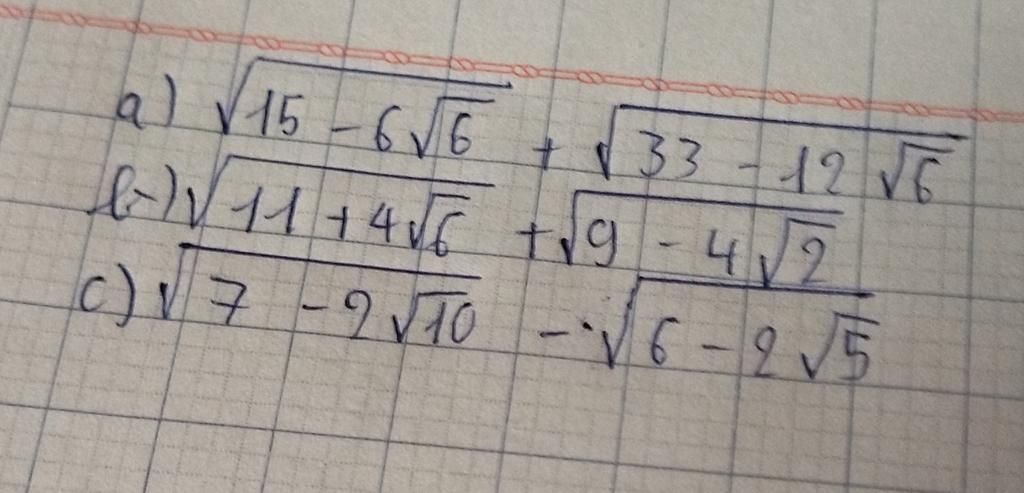 a) √(15 - 6√6) + √(33 - 12√6)
b) √(11 + 4√6) + √(9 - 4√2)
c) √(7 - 2√10) - √(6 - 2√5)